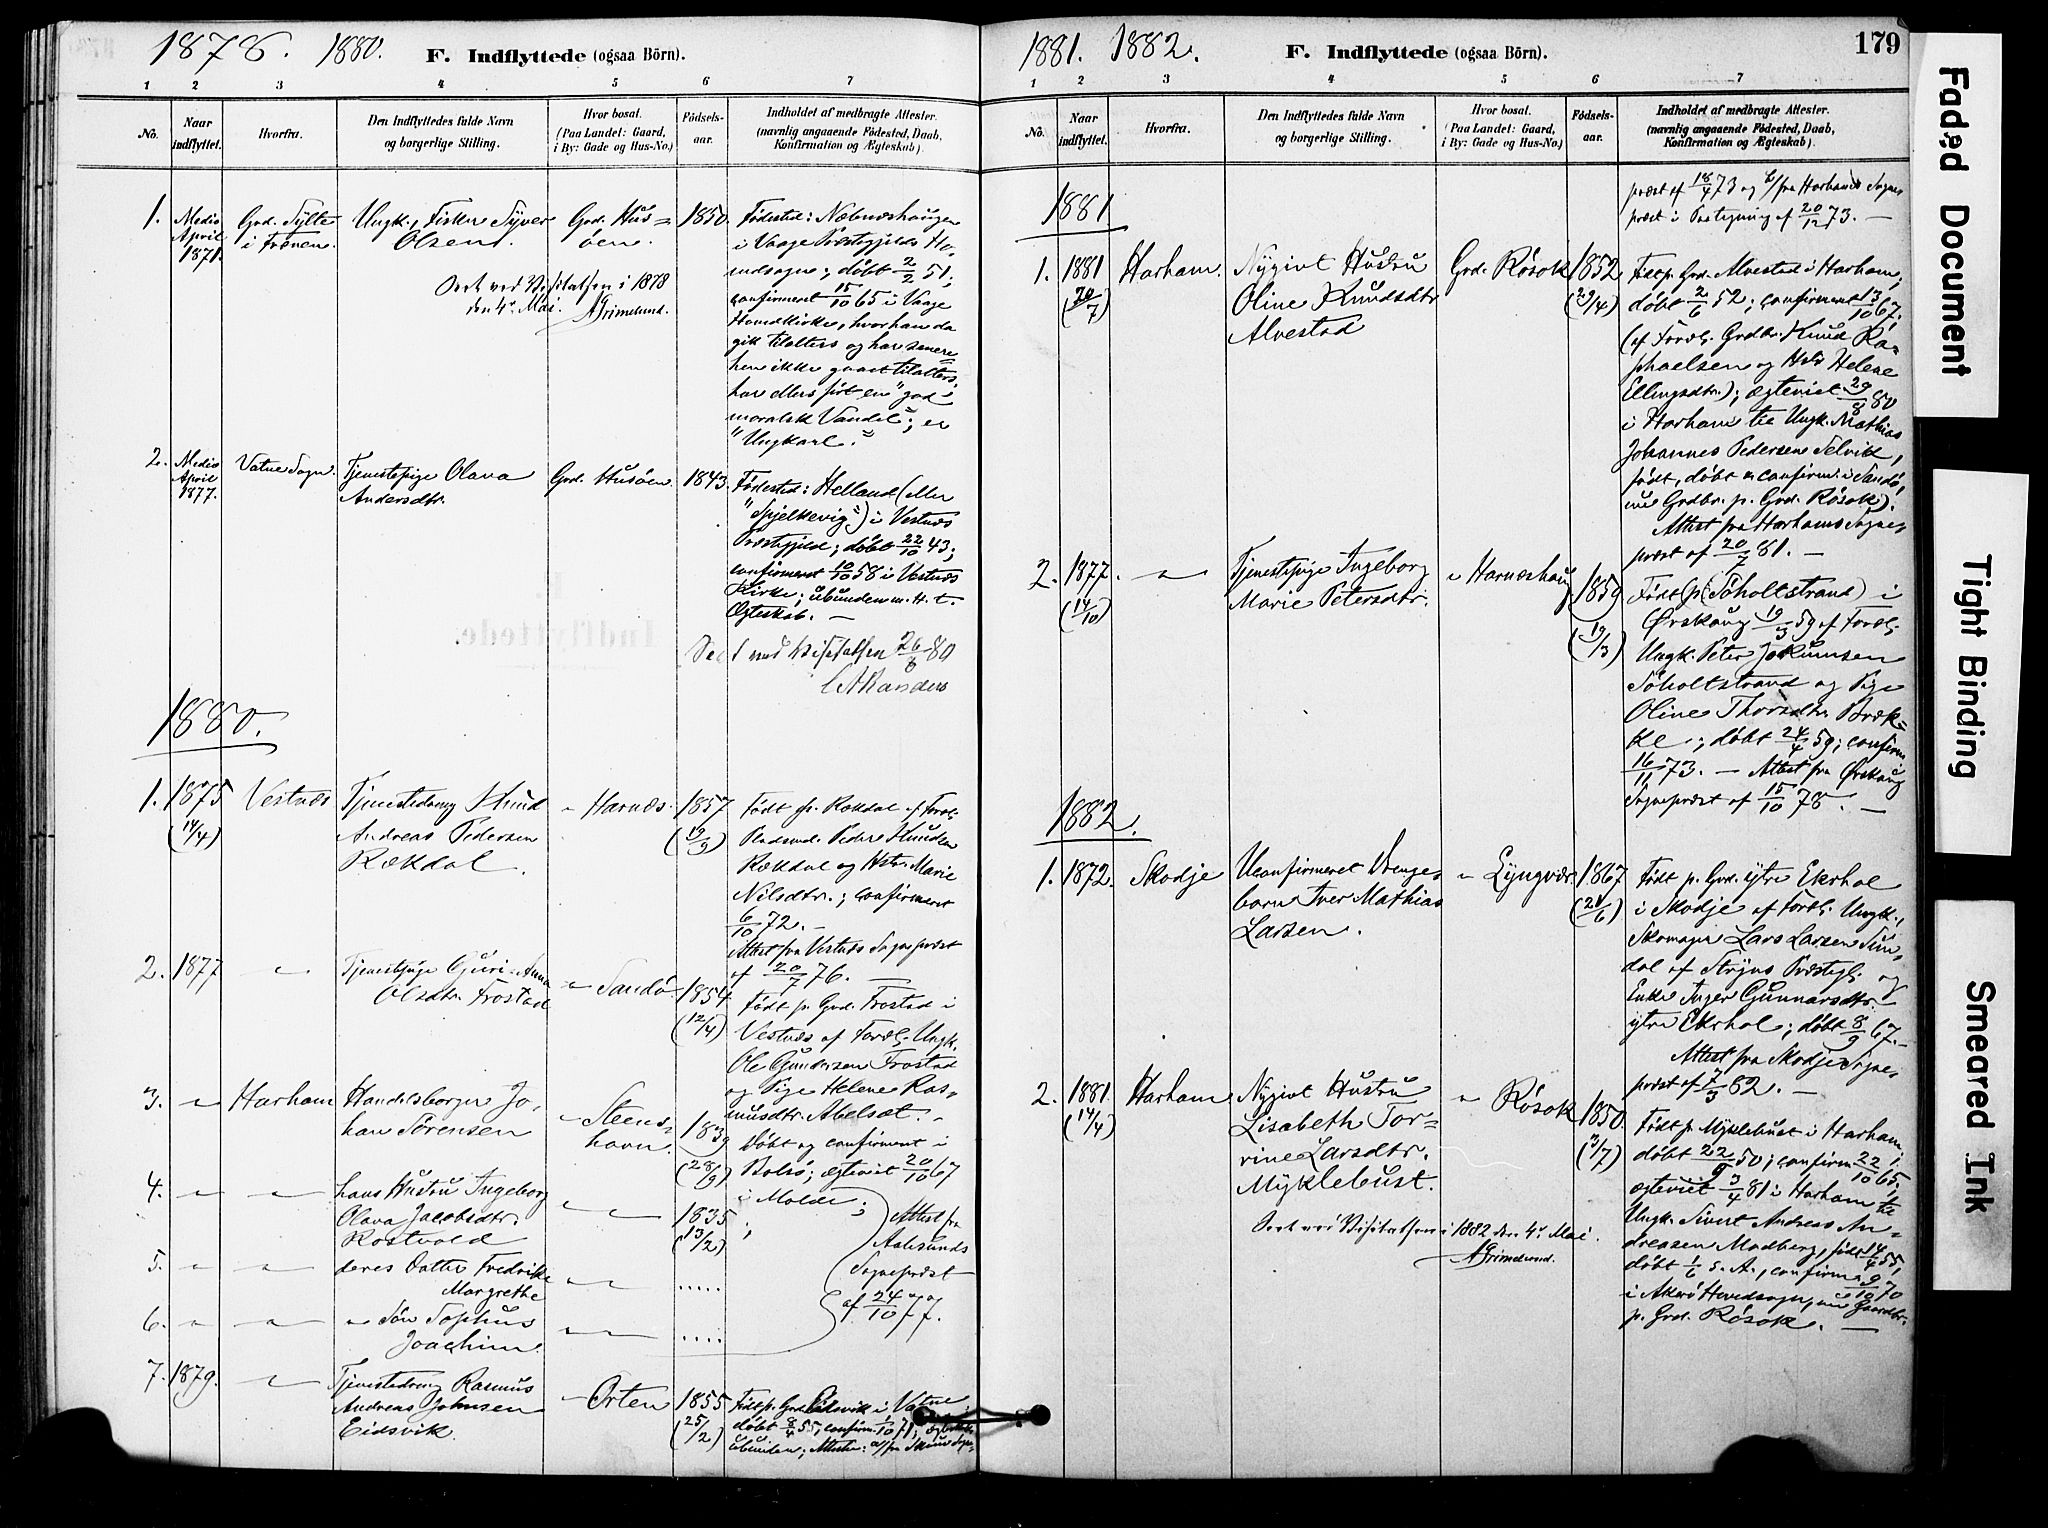 1878. 1880. F. Indflyttede (ogsaa Börn).
1 2 3 4 5 6 7
No. Naar indflyttet. Hvorfra. Den Indflyttedes fulde Navn og borgerlige Stilling. Hvor bosat. (Paa Landet: Gaard, i By: Gade og Hus-No.) Födsels-aar. Indholdet af medbragte Attester. (navnlig angaaende Födested, Daab, Konfirmation og Ægteskab).
1. Medio April 1871. Grd. Sylte i Frænen. Ungk., Fisker Syver Olsen. Grd. Husöen. 1850.
Födested: Næsneshaugen
i Vaage Præstegjelds Ho-
vedsogn; döbt 2/2 51;
confirmeret 15/10 65 i Vaage
Hovedkirke, hvor han da
gik tilalters og har senere-
hen ikke gaaet tilalters,
har ellers fört en "god
moralsk Vandel"; er
"Ungkarl."
Seet ved Visitatsen i 1878
den 4. Mai. AGrimelund.
2. Medio April 1877. Vatne Sogn. Tjenestepige Olava Andersdtr. Grd. Husöen. 1843.
Födested: Helland (eller
"Spjelkevig") i Vestnæs
Præstegjeld; döbt 22/10 43;
confirmeret 10/10 58 i Vestnæs
Kirke; ubunden m. H. t.
Ægteskab. —
Seet ved Visitatsen 26/8 80
1880.
1. 1875 (14/4) Vestnæs Tjenestedreng Knud Andreas Pedersen Rækdal. " Harnæs. 1857 (19/9)
Födt p. Rækdal af Foræl.
Peder Knudsen
Rækdal og Hstr. Marie
Nilsdtr.; confirmeret
6/10 72. —
Attest fra Vestnæs Sognepræst
af 20/7 76. —
2. 1877 " Tjenestepige Guri-Anna Olsdtr. Frostad " Sandö 1854 (12/4)
Födt p. Grd. Frostad i
Vestnæs af Foræl. Ungk.
Ole Gundersen Frostad
og Pige Helene Ras-
musdtr. Abelsæt. —
3. " Harham Handelsborger Johan Sörensen " Steenshavn. 1839 (28/9)
Döbt og confirmert i
Bolsö; ægteviet 20/10 67
i Molde;
4. " " hans Hustru Ingeborg Olava Jacobsdtr. Rostvold " " 1835 (13/2) ;
Attest fra
Aalesunds
Sognepræst
af 24/10 77.
5. " " deres Datter Fredrikke Margrethe " " .....
6. " " " Sön Sophus Joachim. " " ....
7. 1879. " Tjenestedreng Rasmus Andreas Johnsen Eidsvik. " Orten 1855 (25/2)
Födt p. Grd. Eidsvik i Vatne
döbt 8/4 55, confirm. 1/10 71;
ubunden; Attester:
1881. 1882. F. Indflyttede (ogsaa Börn). 179
1 2 3 4 5 6 7
No. Naar indflyttet. Hvorfra. Den Indflyttedes fulde Navn og borgerlige Stilling. Hvor bosat. (Paa Landet: Gaard, i By: Gade og Hus-No.) Födsels-aar. Indholdet af medbragte Attester. (navnlig angaaende Födested, Daab, Konfirmation og Ægteskab).
præst af 18/4 73 og b/ fra Harhams Sogne-
præst i Paategning af 20/12 73. —
1881
1. 1881 (20/7) Harham. Nygivt Hustru Oline Knudsdtr. Alvestad Grd. Rösok 1852 (29/4)
Födt p. Grd. Alvestad i Harham,
döbt 2/6 52; confirmert 13/10 67.
(af Foræl. Grdbr. Knud Ra-
phaelsen og Hstr Helene
Ellingsdtr.); ægteviet 29/8 80
i Harham til Ungk. Mathias
Johannes Pedersen Selvik,
födt, döbt & confirm. i Sandö,
nu Grdbr. p. Grd. Rösok).
Attest fra Harhams Sogne-
præst af 20/7 81. —
2. 1877. (14/10) " Tjenestepige Ingeborg Marie Petersdtr. " Harnæshaug 1859 (19/3)
Födt p. (Söholtstrand) i
Ørskoug 19/3 59 af Foræl.
Ungk. Peter Jokumsen
Söholtstrand og Pige
Oline Thorsdtr. Bræk-
ke; döbt 24/4 59; confirm.
16/11 73. — Attest fra Ørskoug
Sognepræst af 15/10 78. —
1882.
1. 1872. Skodje Uconfirmeret Drengebarn Iver Mathias Larsen. " Lyngvær 1867 (21/6)
Födt p. Grd. ytre Ekrhol
i Skodje af Foræl. Ungk.,
Skomager Lars Larsen Sun-
dal af Stryns Præstegj. og
Enke Inger Gunnarsdtr.
ytre Ekrhol; döbt 8/9 67. —
Attest fra Skodje Sogne-
præst af 7/3 82. —
2. 1881. (14/4) Harham Nygivt Hustru Lisabeth Torrine Larsdtr. Myklebust. " Rösok 1850. (3/7)
Födt p. Myklebust i Harham;
döbt 22/9 50; confirm. 22/10 65;
ægteviet 3/4 81 i Harham til
Ungk. Sivert Andreas An-
dreasen Madberg, född 14/4 55,
döbt 1/6 s. A., confirm. 9/10 70
i Akerö Hovedsogn, nu Gaardbr.
p. Grd. Rösok. —
Seet ved Visitatsen i 1882 den 4. Mai.
AGrimelund.
Faded Document
Tight Binding
Smeared Ink